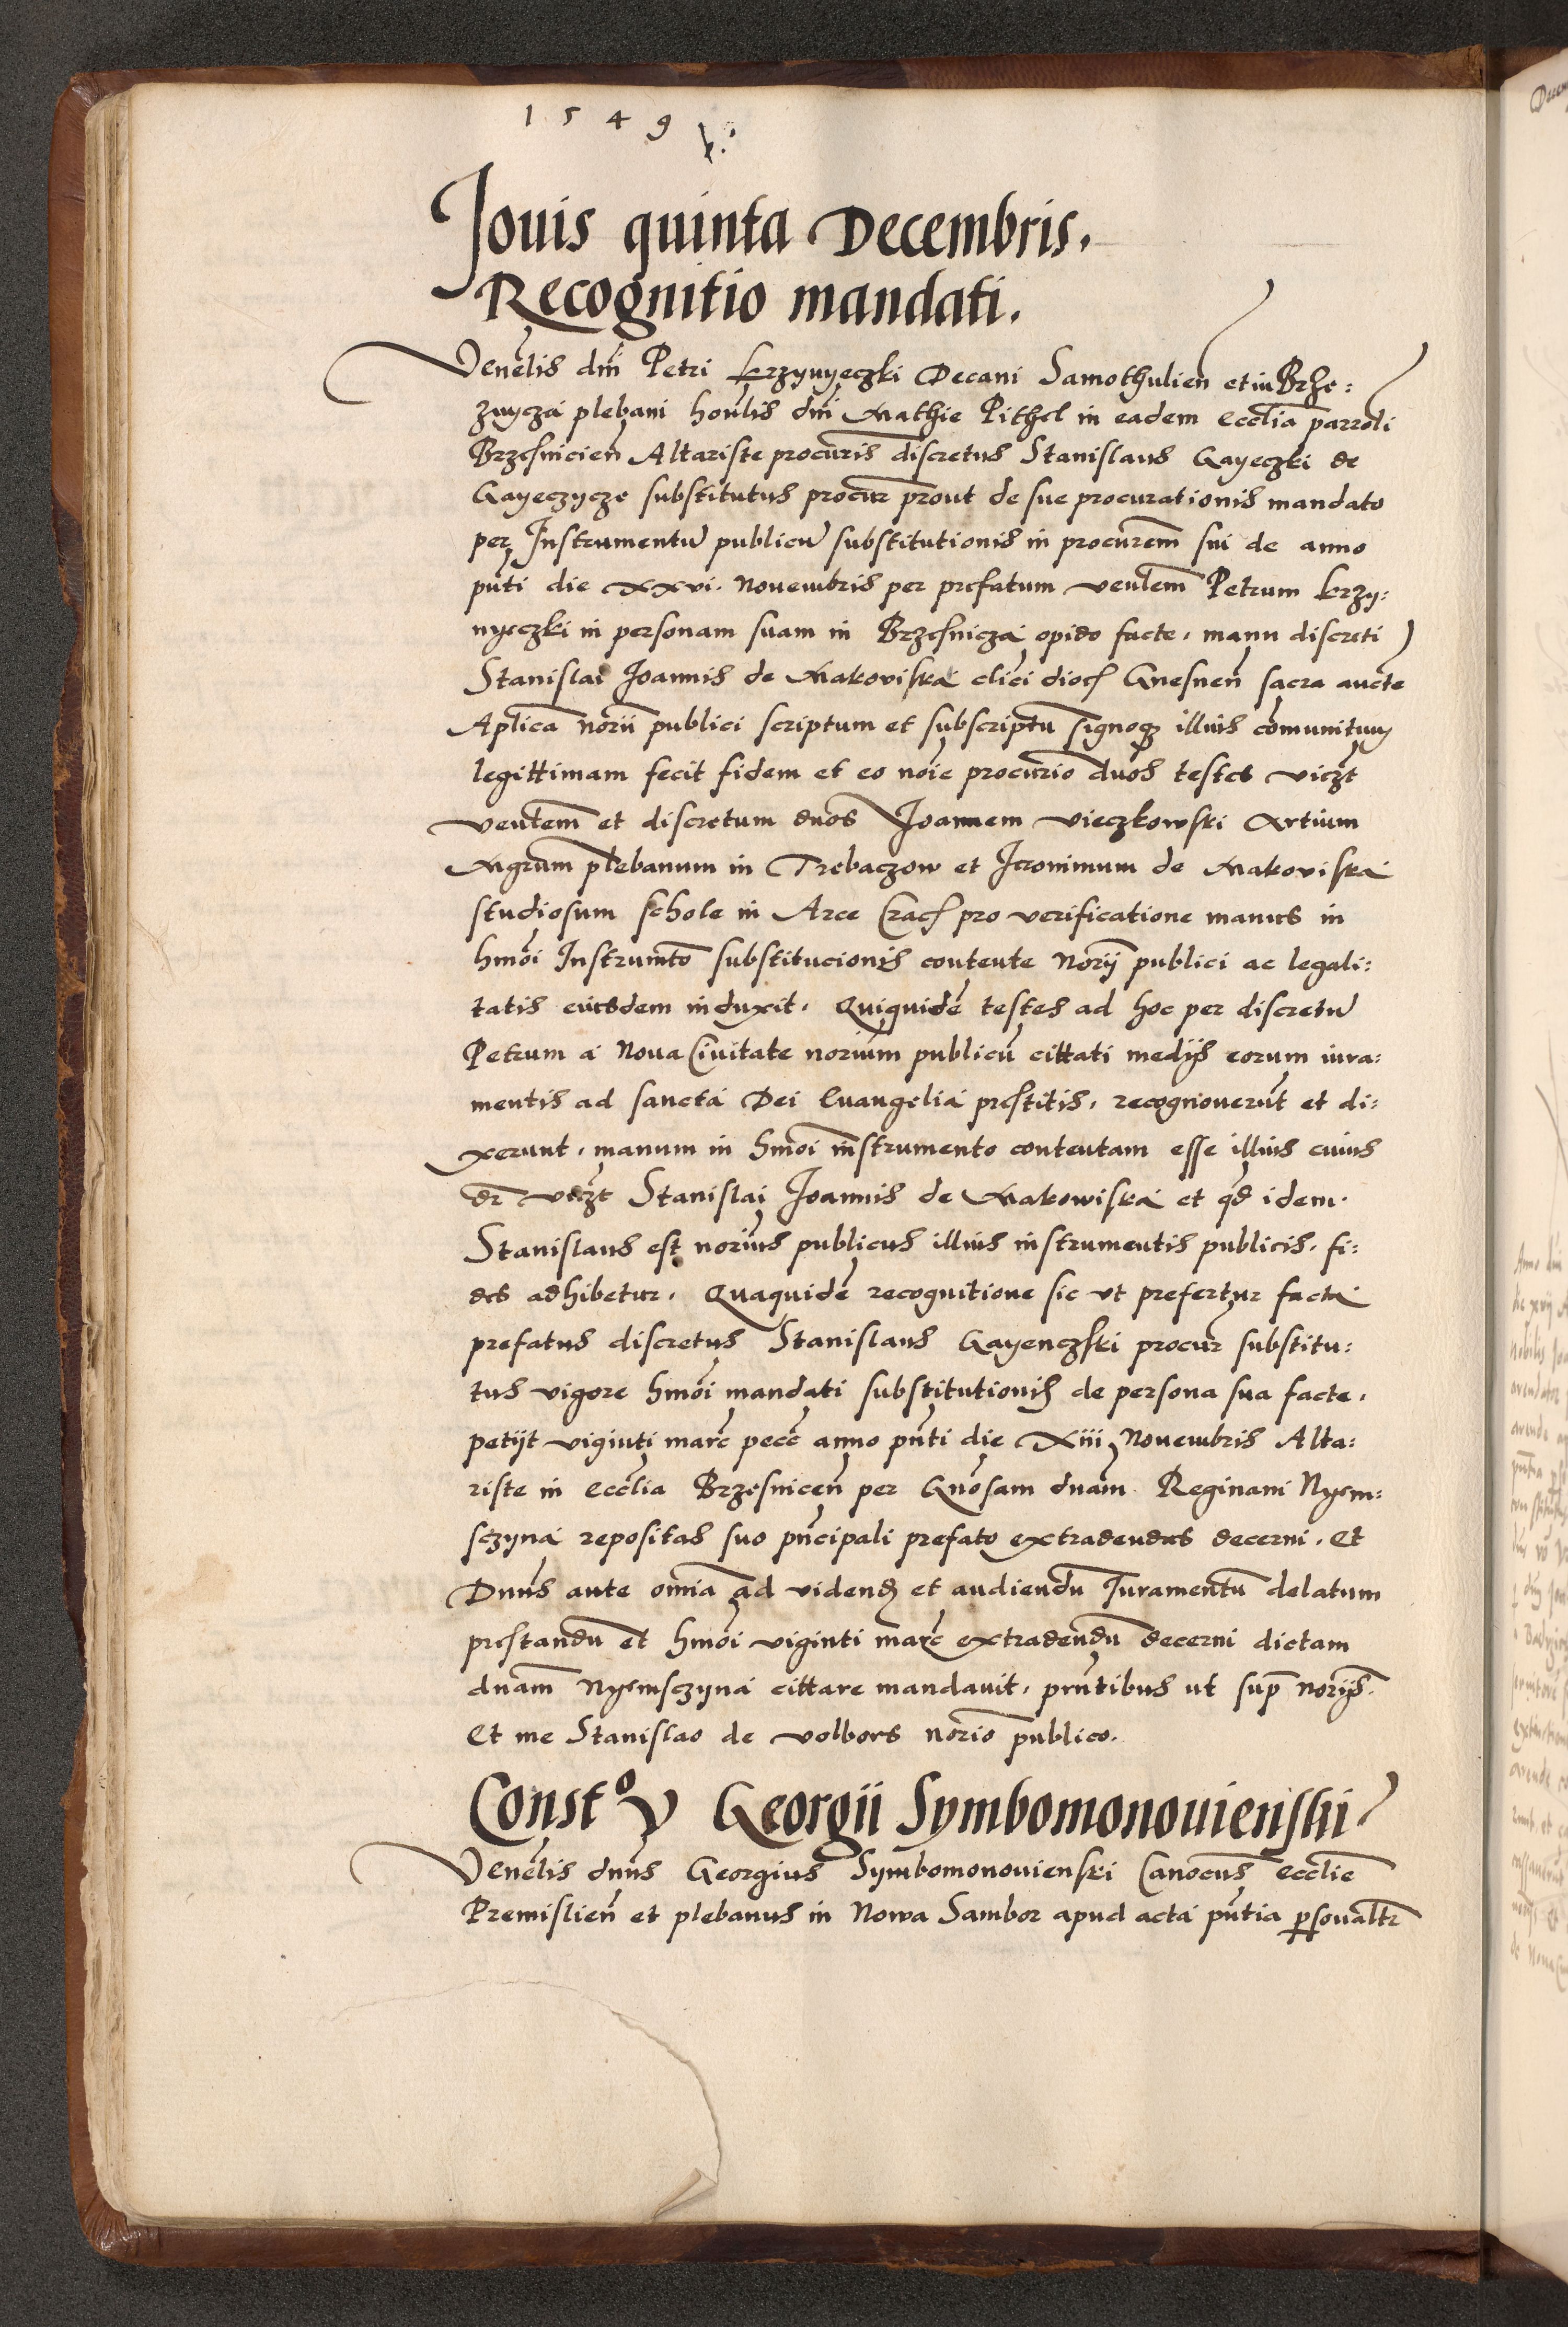 1549
Jouis quinta Decembris.
Recognitio mandati.
Venelis dni Petri Krzywyeczki Decani Samothulien et in Brze:
znycza plebani honlis dni Mathie Pithel in eadem ecclia parroli
Brzesnicien Altariste procuris discretus Stanislaus Gayeczki de
Gayeczycze substitutus procur prout de sue procurationis mandato
per Instrumentu publicu substitutionis in procurem sui de anno
pnti die xxvi. Nouembris per prefatum venlem Petrum Krzy:
nyeczki in personam suam in Brzesnicza opido facte, manu discreti
Stanislai Joannis de Makoviska clici dioc Gnesnen sacra aucte
Aplica norii publici scriptum et subscriptu signoq illius comunitum
legittimam fecit fidem et eo noie procurio duos testes viczt
venlem et discretum dnos Joannem Vieczkowski Artium
Mgrum plebanum in Trebaczow et Jeronimum de Makoviska
studiosum schole in Arce Crac pro verificatione manus in
hmoi Instrumto substitucionis contente Norij publici ac legali:
tatis eiusdem induxit. Quiquide testes ad hoc per discretu
Petrum a Noua Ciuitate norium publicu cittati medijs eorum iura:
mentis ad sancta Dei Euangelia prestitis, recognouerut et di:
xerunt, manum in hmoi instrumento contentam esse illius cuius
dr vdzt Stanislai Joannis de Makowiska et qd idem
Stanislaus est norius publicus illius instrumentis publicis, fi:
des adhibetur. Quaquide recognitione sic ut prefertur facta
prefatus discretus Stanislaus Gayenczski procur substitu:
tus vigore hmoi mandati substitutionis de persona sua facte,
petijt viginti marc pecc anno pnti die Xiii Nouembris Alta:
riste in ecclia Brzesnicen per Gnosam dnam Reginam Nyem:
sczyna repositas suo pncipali prefato extradendas decerni. Et
Dnus ante omia ad vidend et audiendu Juramentu delatum
prestandu et hmoi viginti marc extradendu decerni dictam
dnam Nyemsczyna cittare mandauit, prntibus ut sup norijs.
Et me Stanislao de Volbors norio publico.
Consto V Georgii Symbomonouienski
Venelis dnus Georgius Symbomonouienski Canocus ecclie
Premislien et plebanus in Nowa Sambor apud acta pntia psonaltr